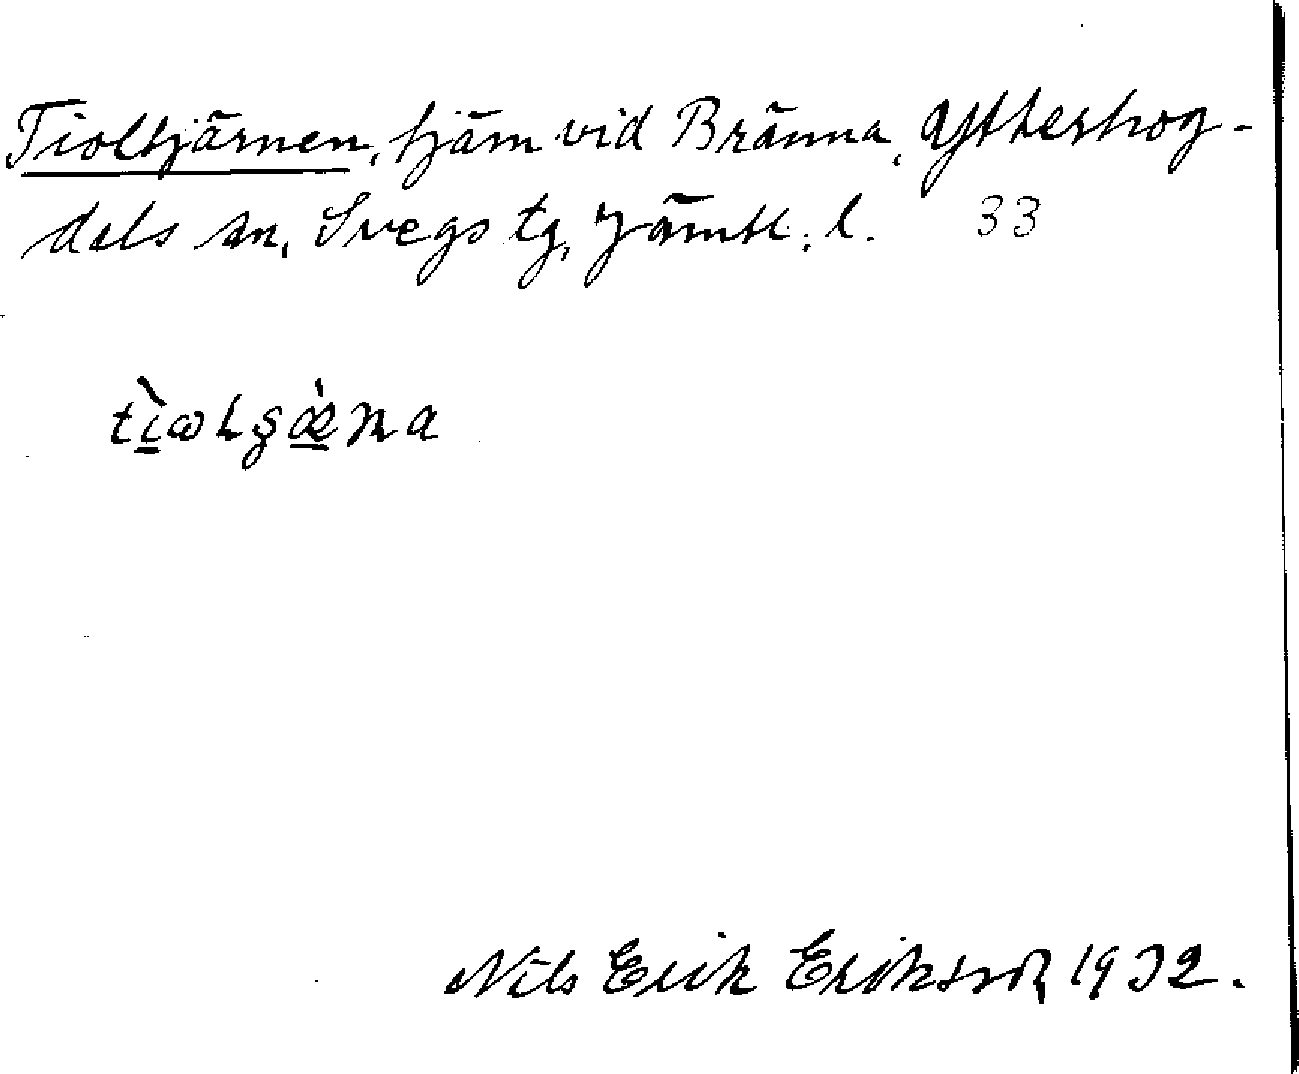 Tioltjärnen, tjärn vid Bränna, Ytterhog-
dals sn, Svegs tg, Jämtl. l. 33
tìωlʂæ̀ɳa
Nils Erik Eriksson 1932.